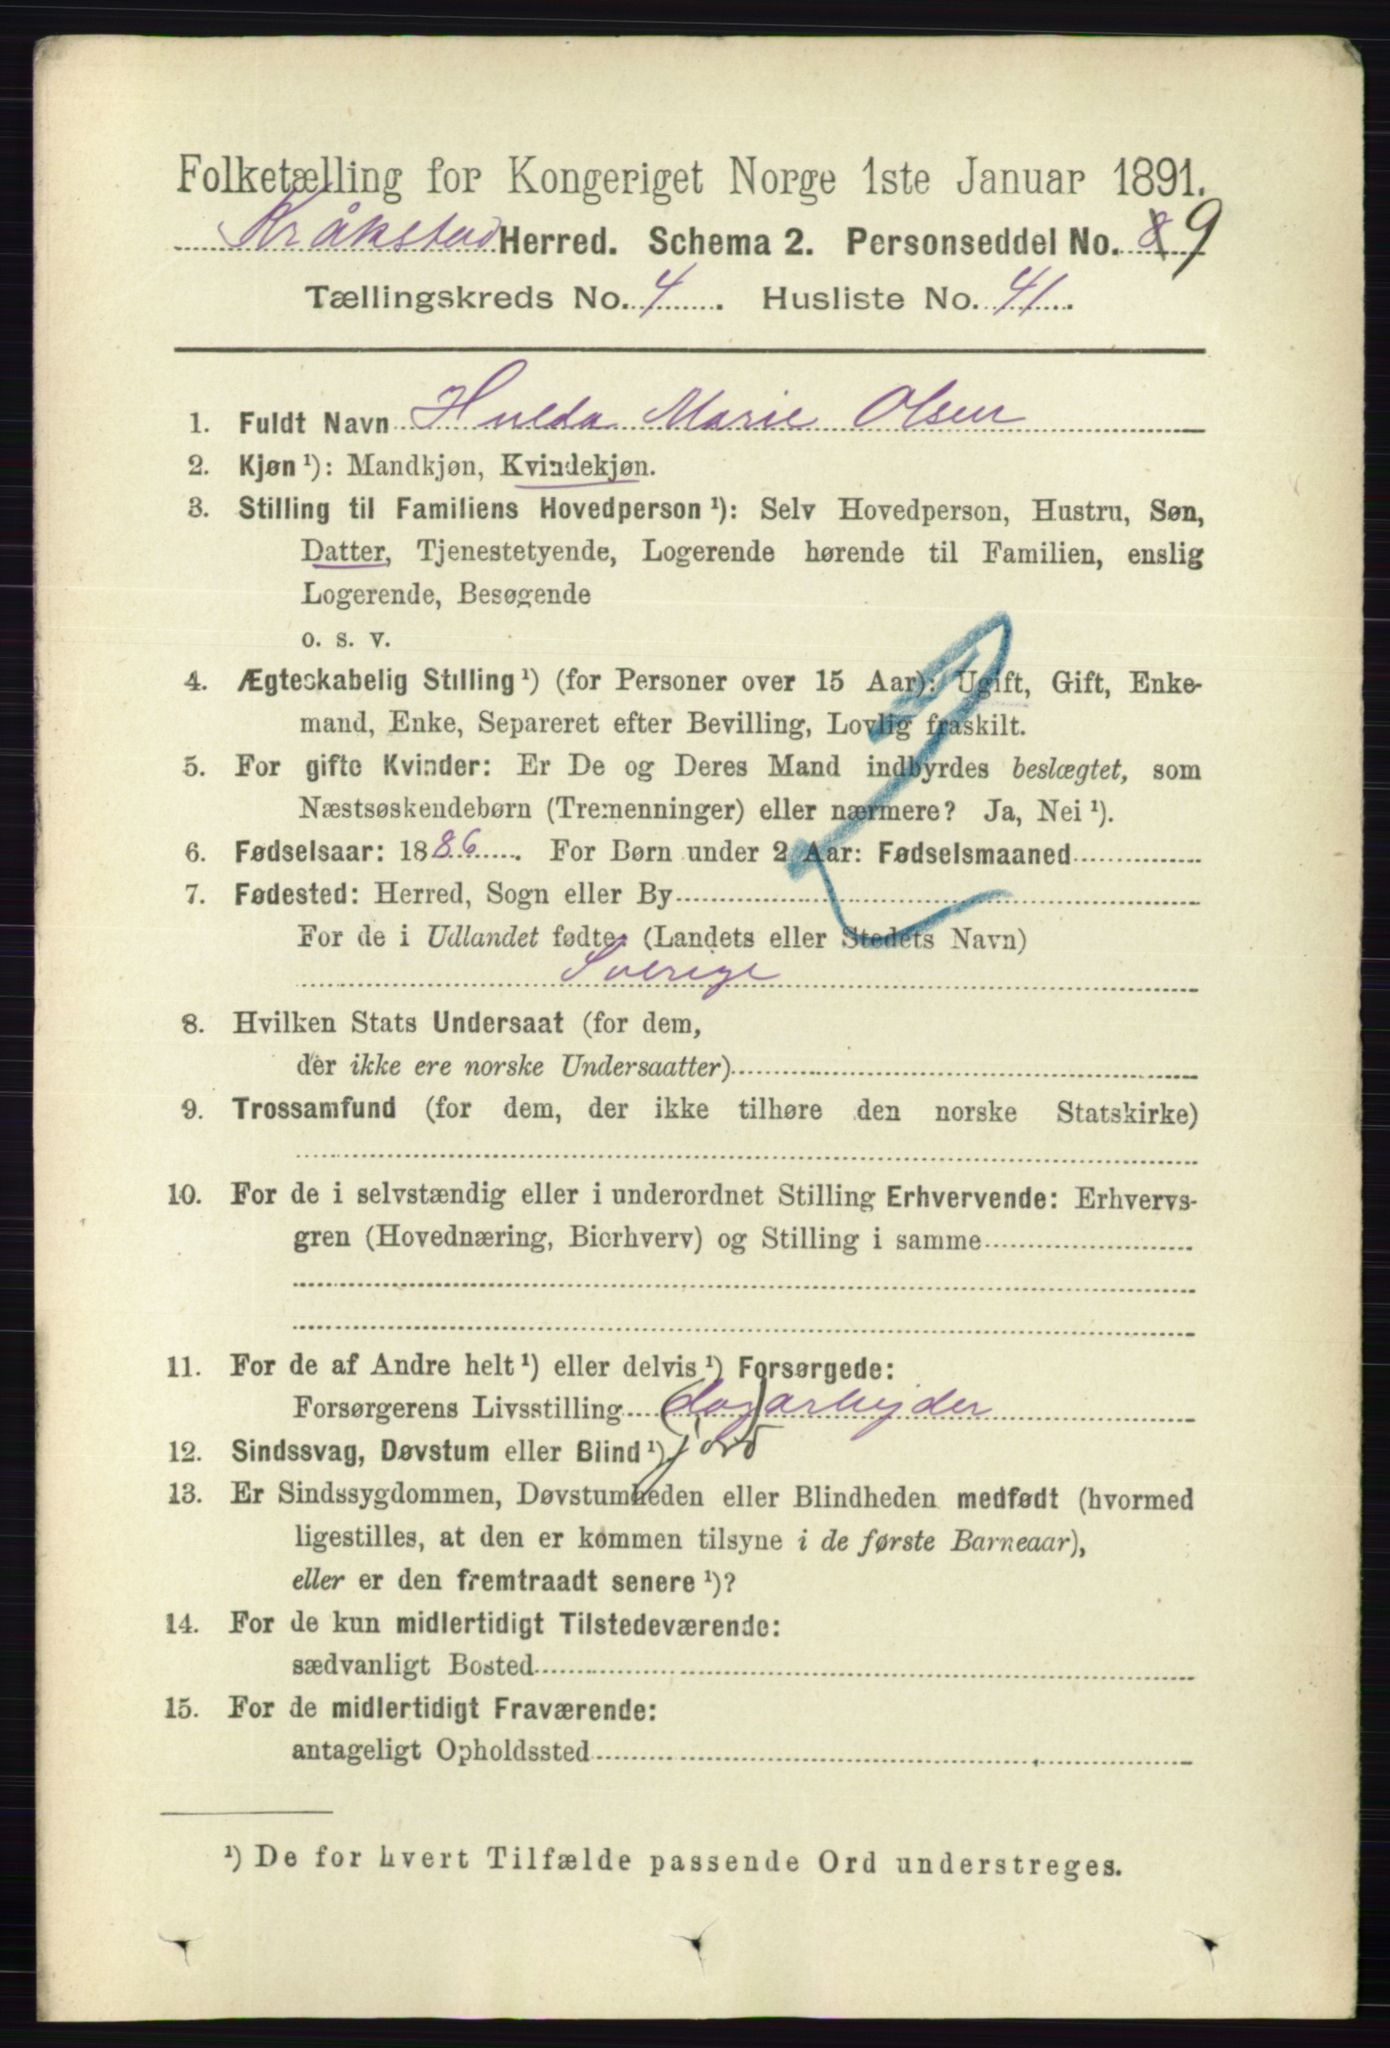 Folketælling for Kongeriget Norge 1ste Januar 1891.
Kråkstad Herred. Schema 2. Personseddel No. 8 9
Tællingskreds No. 4. Husliste No. 41.
1. Fuldt Navn Hulda Marie Olsen
2. Kjøn ¹): Mandkjøn, Kvindekjøn.
3. Stilling til Familiens Hovedperson ¹): Selv Hovedperson, Hustru, Søn,
Datter, Tjenestetyende, Logerende hørende til Familien, enslig
Logerende, Besøgende
o. s. v.
4. Ægteskabelig Stilling ¹) (for Personer over 15 Aar): Ugift, Gift, Enke-
mand, Enke, Separeret efter Bevilling, Lovlig fraskilt.
5. For gifte Kvinder: Er De og Deres Mand indbyrdes beslægtet, som
Næstsøskendebørn (Tremenninger) eller nærmere? Ja, Nei ¹).
6. Fødselsaar: 1886. For Børn under 2 Aar: Fødselsmaaned
7. Fødested: Herred, Sogn eller By
For de i Udlandet fødte: (Landets eller Stedets Navn)
Sverige
8. Hvilken Stats Undersaat (for dem,
der ikke ere norske Undersaatter)
9. Trossamfund (for dem, der ikke tilhøre den norske Statskirke)
10. For de i selvstændig eller i underordnet Stilling Erhvervende: Erhvervs-
gren (Hovednæring, Bierhverv) og Stilling i samme
11. For de af Andre helt ¹) eller delvis ¹) Forsørgede:
Forsørgerens Livsstilling (dag)arbejder
12. Sindssvag, Døvstum eller Blind ¹) jord
13. Er Sindssygdommen, Døvstumheden eller Blindheden medfødt (hvormed
ligestilles, at den er kommen tilsyne i de første Barneaar),
eller er den fremtraadt senere ¹)?
14. For de kun midlertidigt Tilstedeværende:
sædvanligt Bosted
15. For de midlertidigt Fraværende:
antageligt Opholdssted
¹) De for hvert Tilfælde passende Ord understreges.